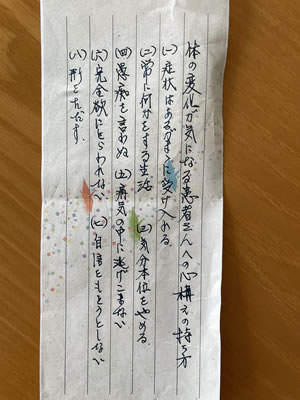 体の変化が気になる患者さんへの心構えの持ち方
(一) 症状はあるがまゝに受け入れる
(二) 常に何かをする生活 (三) 気分本位をやめる
(四) 愚痴を言わぬ (五) 病気の中に逃げこまない
(六) 完全欲にとらわれない (七) 自信をもとうとしない
(八) 形をただす